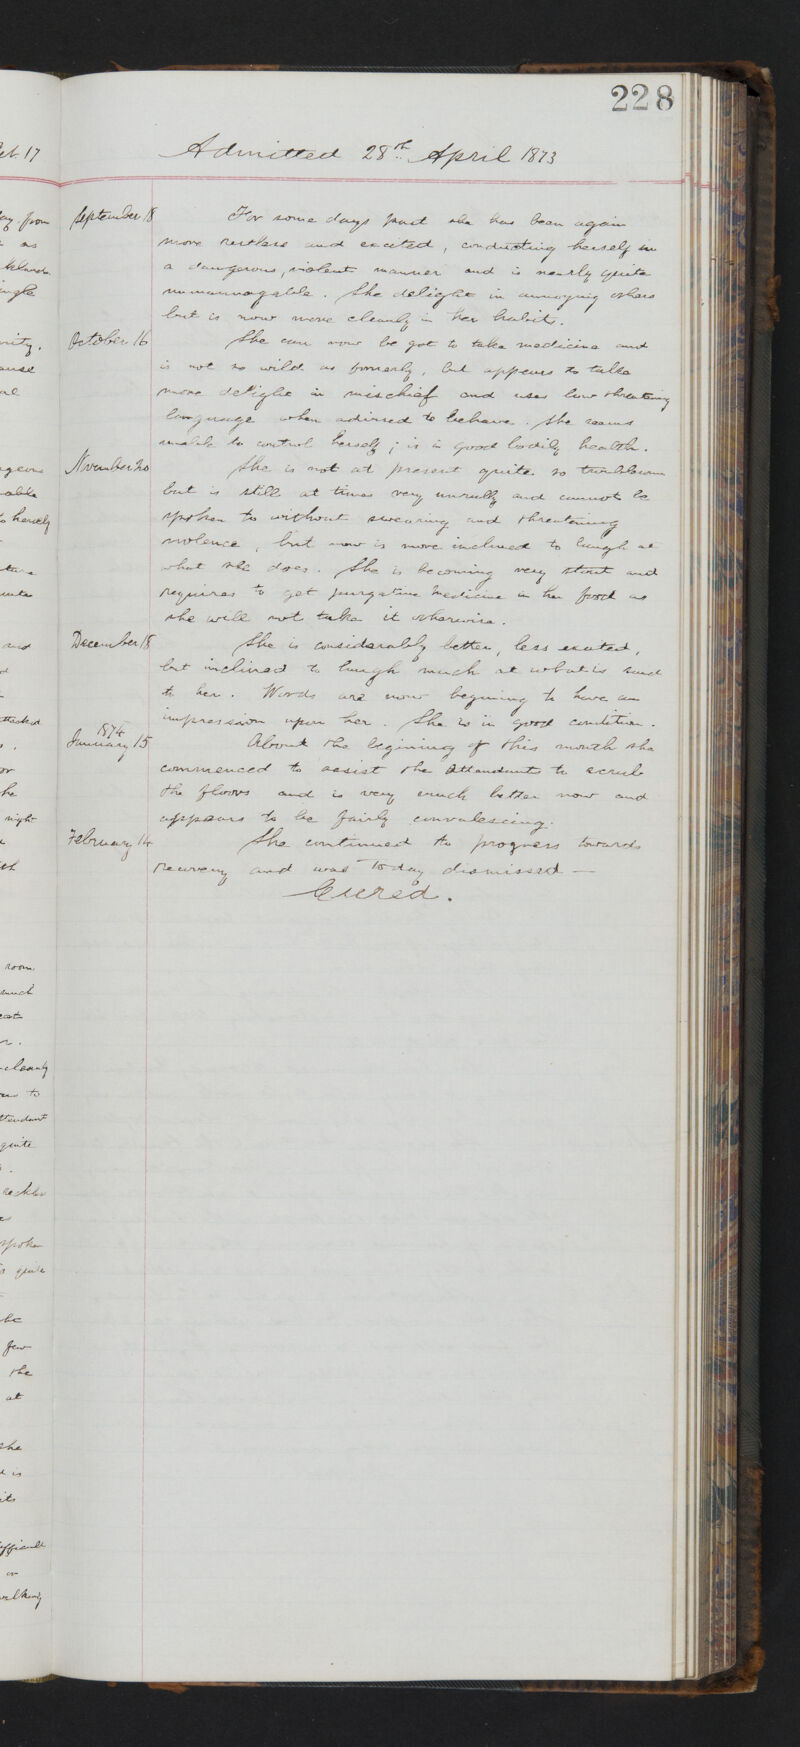 228
Admitted 28th April 1873
September 18 For some days past she has been again
more restless and excited, conducting herself in
a dangerous, violent manner and is nearly quite
unmannagable. She delights in annoying others
but is now more cleanly in her habits.
October 16 She can now be got to take medicine and
is not so wild as formerly, but appears to take
more delight in mischief and uses low threatening
language when advised to behave. She seems
unable to control herself; is in good bodily health.
November 20 She is not at present quite so troublesome
but is still at times very unruly and cannot be
spoken to without swearing and threatening
violence, but now is more inclined to laugh at
what she does. She is becoming very stout and
requires to get purgative medicine in her food as
she will not take it otherwise.
December 18 She is considerably better, less excited,
but inclined to laugh much at what is said
to her. Words are now begining to have an
impression upon her. She is in good condition.
1874
January 15 About the begining of this month she
commenced to assist the Attendants to scrub
the floors and is very much better now and
appears to be fairly convalescing.
February 14 She continued to progress towards
recovery and was today dismissed —
Cured.